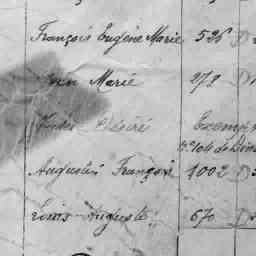 François Eugène Marie 526
Marie 272
Désiré Exemp
Augustin François 1002
Louis Auguste 670